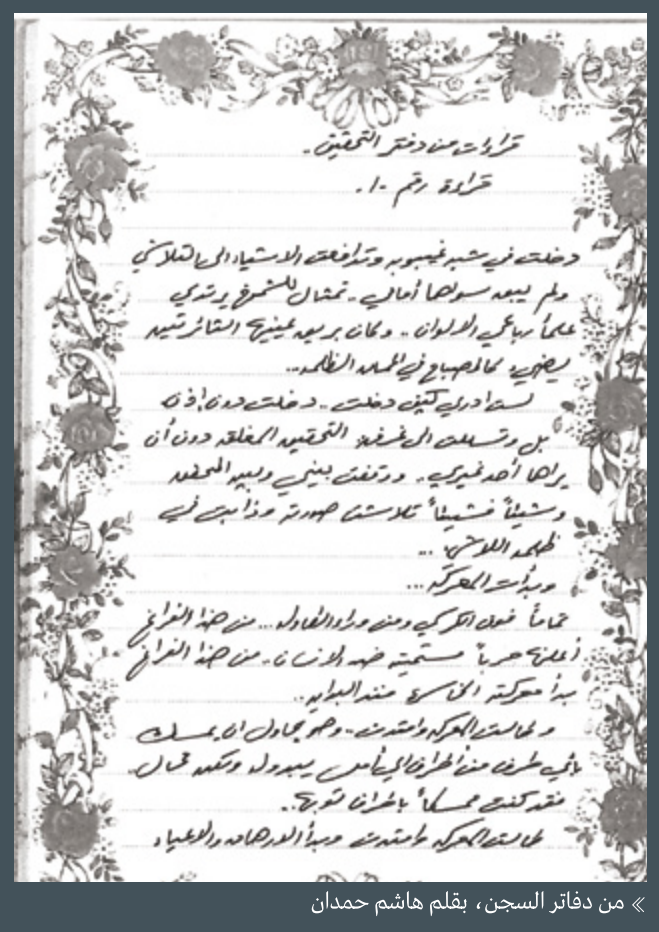 قراءات من دفتر التحقيق.
قراءة رقم -١-
دخلت في شبه غيبوبه وتدافعت الاشياء الى بالتلاشي
ولم يبق سواها أمامي.. تمثال للشموخ يرتدي
علماً رباعي الالوان .. وكان بريق عينيها الثائرتين
يضيء كالمصباح في الظلمه...
لست ادري كيف دخلت .. دخلت دون إذن
بل وتسللت الى غرفة التحقيق المغلقه دون أن
يراها أحد غيري.. ووقفت بيني وبين المحقق
وشيئاً فشيئاً تلاشت صورته وذابت في
ظلمه اللاشيء ...
وبدأت المعركه ...
تماماً فوق الكرسي ومن وراء الطاوله... من هذا الفراغ
أعلنها حرباً مستميته ضد الانسان.. من هذا الفراغ
بدأ معركته الخاسره منذ البدايه..
وطالت المعركه وامتدت .. وهو يحاول ان يمسك
بأي طرف من أطراف ولكنه محال
فقد كنت ممسكاً باطراف ثوبها..
طالت المعركه وامتدت وبدأ الارهاق والاعياء
« من دفاتر السجن، بقلم هاشم حمدان